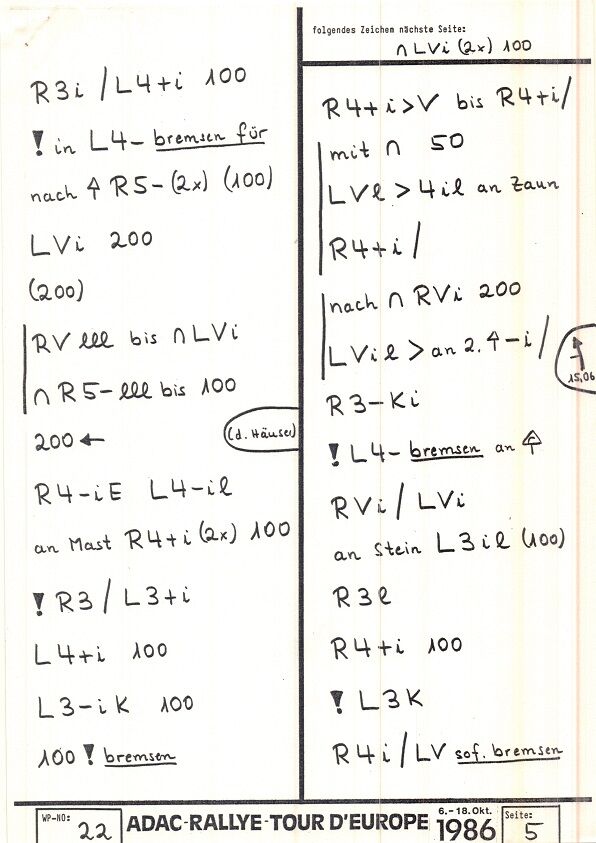 folgendes Zeichen nächste Seite:
∩ LVi (2x) 100
R3i / L4+i 100
! in L4- bremsen für
nach ⇑ R5- (2x) (100)
LVi 200
(200)
RV lll bis ∩ LVi
∩ R5-lll bis 100
200 ←
(d. Häuser)
R4-iE L4-il
an Mast R4+i (2x) 100
! R3 / L3+i
L4+i 100
L3-iK 100
100 ! bremsen
R4+i>V bis R4+i/
mit ∩ 50
LVl > 4il an Zaun
R4+i /
nach ∩ RVi 200
LVil > an 2. ⇑-i /
15,06
R3-Ki
! L4- bremsen an
RVi / LVi
an Stein L3il (100)
R3l
R4+i 100
! L3K
R4i / LV sof. bremsen
WP-NO: 22
ADAC-RALLYE-TOUR D'EUROPE
6.-18. Okt.
1986
Seite: 5